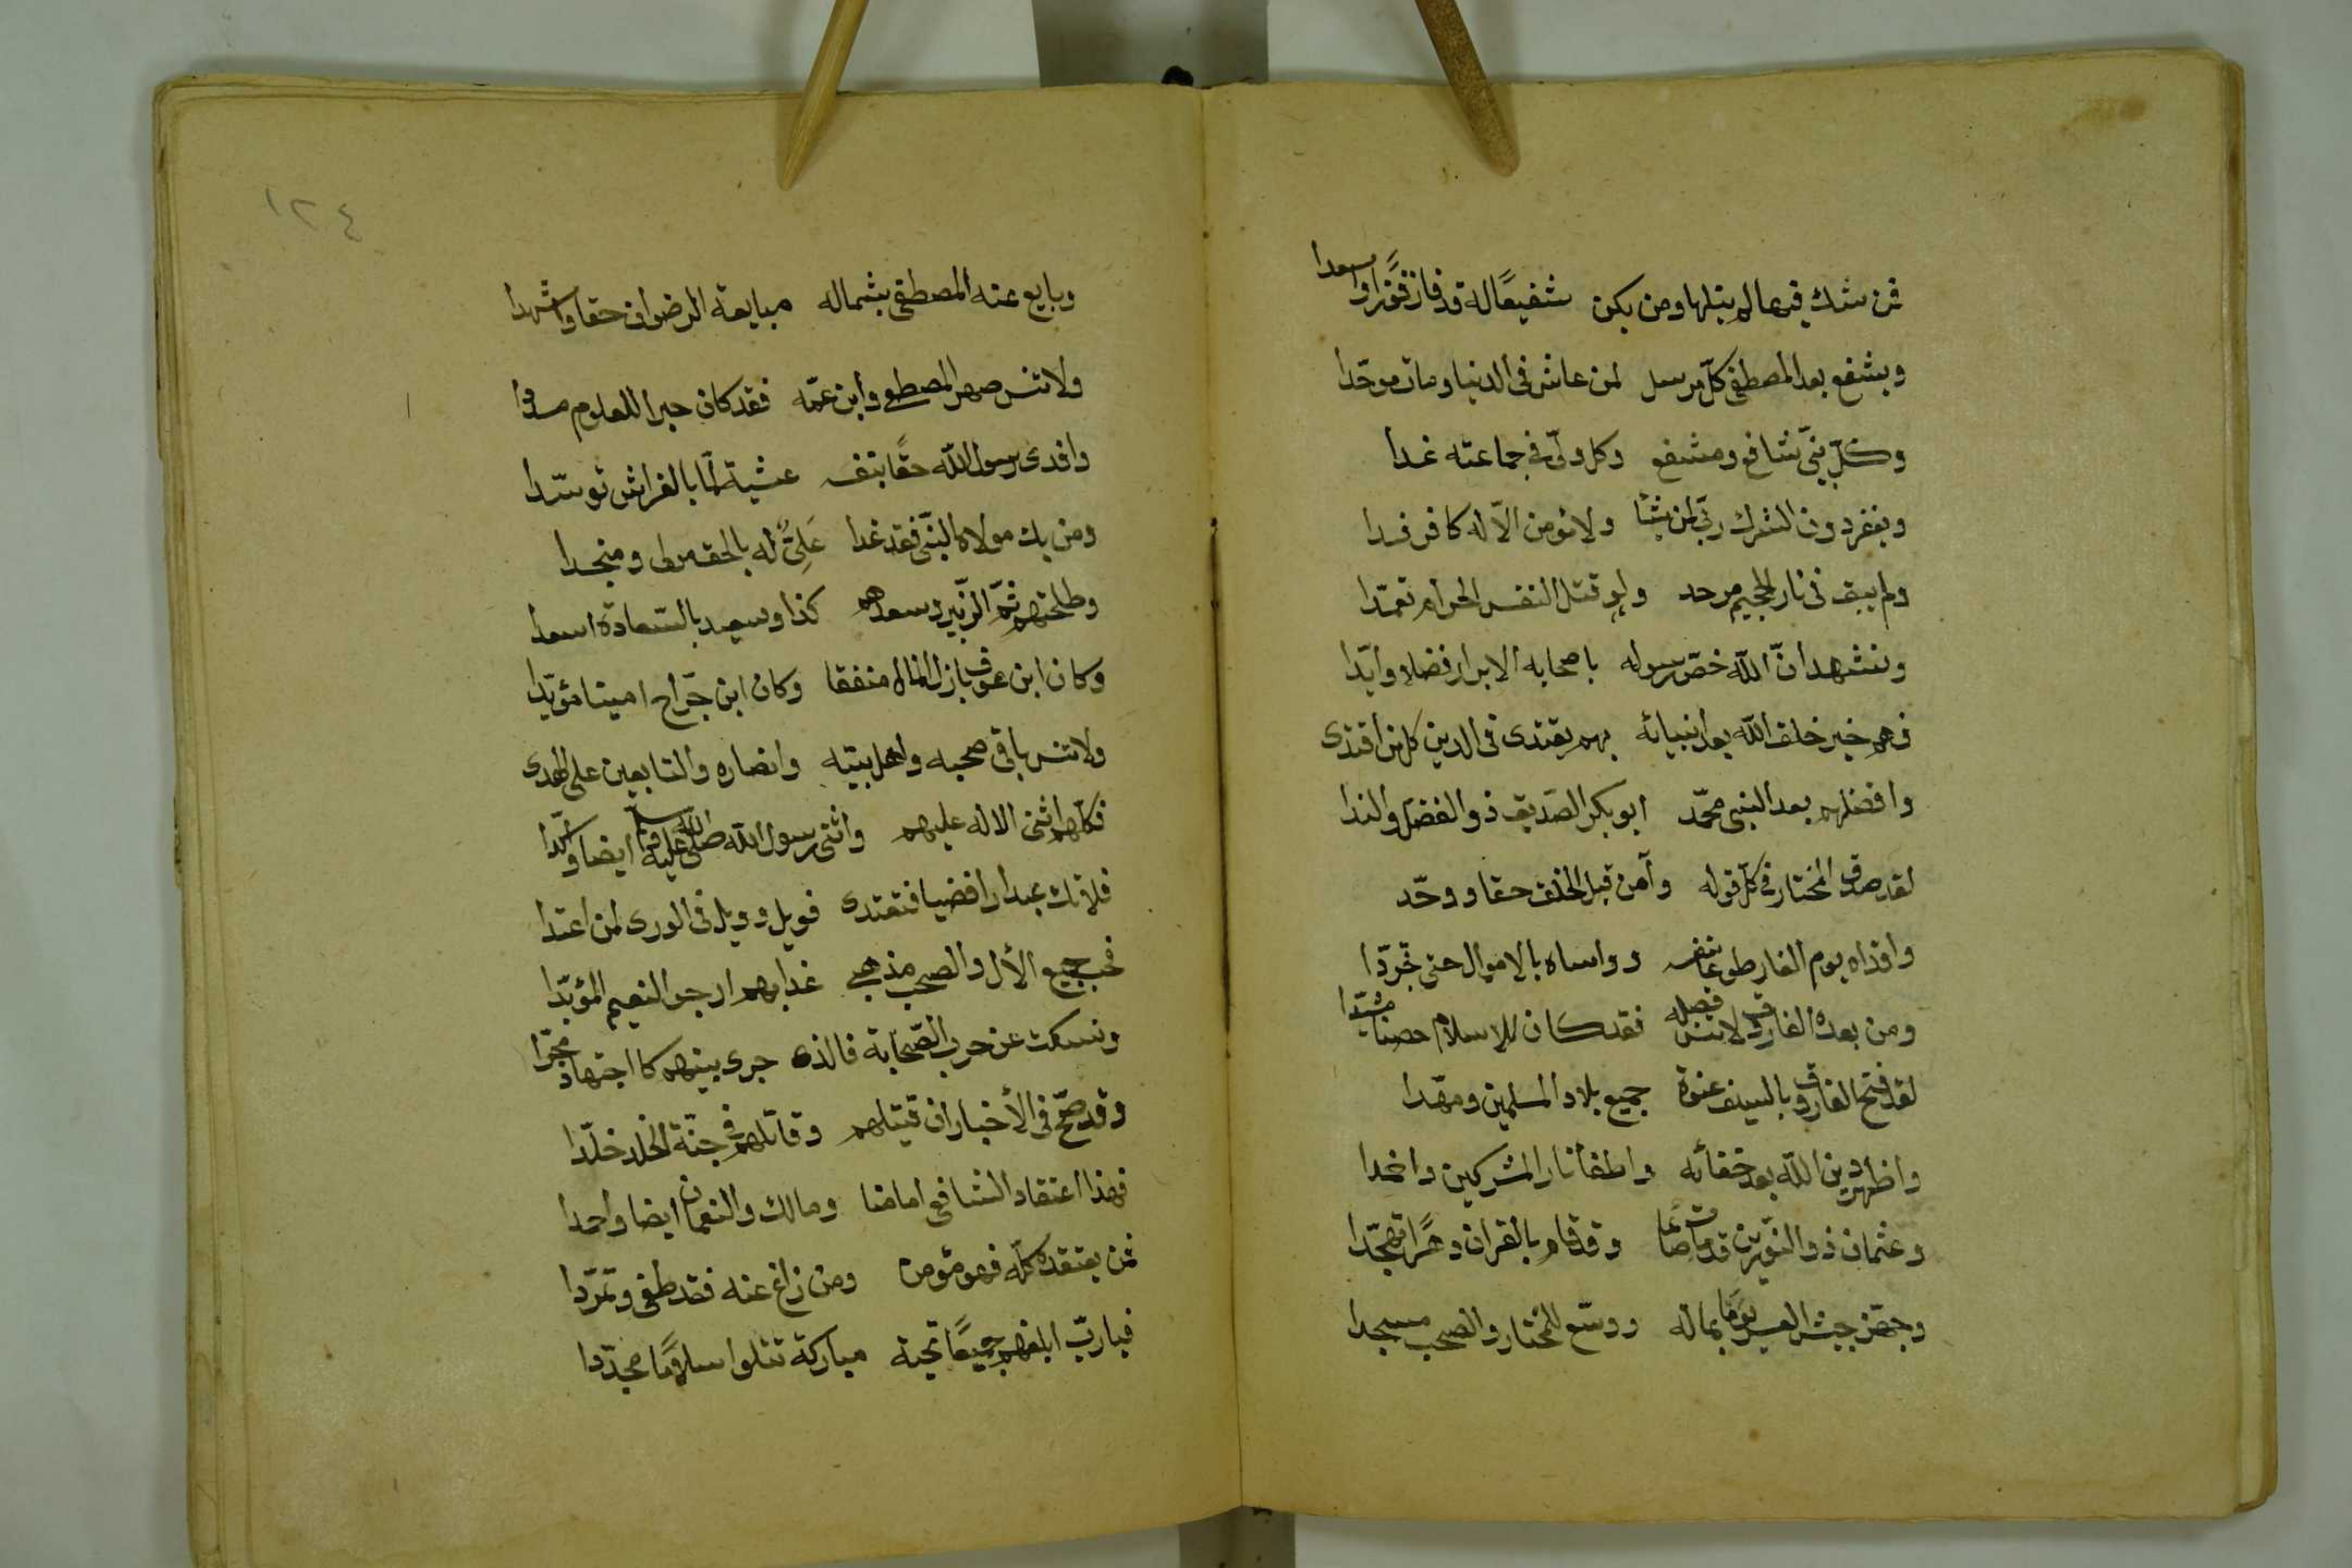 فمن شك فيها لم ينلها ومن يكن شفيعًا له قد فاز فوزًا واسعدا
ويشفع بعد المصطفى كلّ مرسل لمن عاش فى الدنيا ومات موحّدا
وكلّ نبىّ شافع ومشفع وكل ولىّ فى جماعته غدا
ويغفر دون الشرك ربّى لمن يشا ولا مؤمن الاّ له كافر فدا
ولم يبق فى نار الجحيم موحد ولو قتل النفس الحرام تعمّدا
ونشهد انّ اللّه خصّ رسوله باصحابه الابرار فضلا وايّدا
فهم خير خلق اللّه بعد انبيائه بهم يقتدى فى الدين كل من اقتدى
وافضلهم بعد النبى محمّد ابو بكر الصّديق ذو الفضل والندا
لقد صدق المختار فى كلّ قوله وآمن قبل الخلق حقا ووحّد
وافداه يوم الغار طوعا بنفسه وواساه بالاموال حتى تجرّدا
ومن بعده الفاروق لا تنس فضله فقد كان للاسلام حصنا مشيّدا
لقد فتح الفاروق بالسيف عنوة جميع بلاد المسلمين ومهّدا
واظهر دين اللّه بعد خفائه واطفأ نار المشركين واخمدا
وعثمان ذو النّورين قد مات صائما وقد قام بالقران دهرًا تهجّدا
وجهّز جيش العسر يومًا بماله ووسّع للمختار والصحب مسجدا
١٢٤
وبايع عنه المصطفى بشماله مبايعة الرضوان حقا واشهدا
ولا تنس صهر المصطفى وابن عمّه فقد كان حبرا للعلوم
وافدى رسول اللّه حقًا بنفسه عشية لمّا بالفراش توسّدا
ومن يك مولاه النّبى فقد غدا عَلِىٌّ له بالحق مولى ومنجدا
وطلحتهم ثمّ الزّبير وسعدهم كذا وسعيد بالسّعادة اسعدا
وكان ابن عوف باذل المال منفقا وكان ابن جّراح امينا مؤيّدا
ولا تنس باقى صحبه واهل بيته وانصاره والتابعين على الهدى
فكلّهم اثنى الاله عليهم واثنى رسول اللّه صلى اللّه عليه وسلم ايضا واكّدا
فلا تك عبدا رافضيا فتعتدى فويل وويل فى الورى لمن اعتدا
فحب جميع الأل والصحب مذهبى غدا بهم ارجو النعيم المؤبّدا
ونسكت عن حرب الصّحابة فالذى جرى بينهم كا اجتهاد مجرّا
وقد صحّ فى الأخبار ان قتيلهم وقاتلهم فى جنّة الخلد خلّدا
فهذا اعتقاد الشافعى امامنا ومالك والنعمان ايضا واحمدا
فمن يعتقده كلّه فهو مؤمن ومن زاغ عنه فقد طغى وتمرّدا
فيا ربّ ابلغهم جميعًا تحية مباركة تتلوا سلامًا مجدّدا